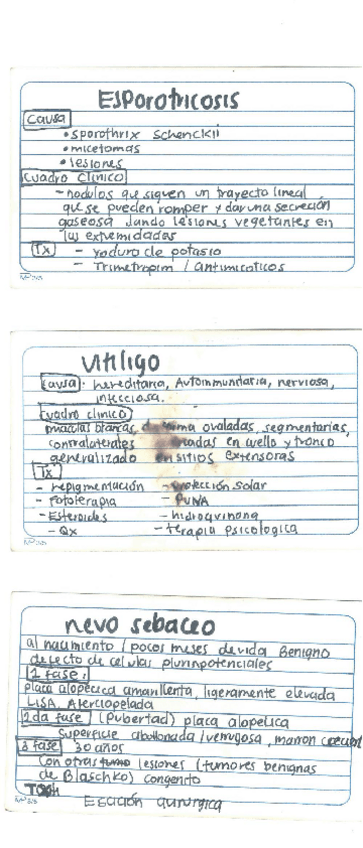 Esporotricosis
Causa
• sporothrix schenckii
• micetomas
• lesiones
Cuadro Clinico
- nodulos que siguen un trayecto lineal
que se pueden romper y dar una secreción
gaseosa dando lesiones vegetantes en
las extremidades
Tx - yoduro de potasio
- Trimetropim / antimicoticos
Vitiligo
Causa: hereditaria, Autoinmunitaria, nerviosa,
infecciosa.
Cuadro clinico
maculas blancas, de forma ovaladas, segmentarias,
contralaterales en cuello y tronco
generalizado en sitios extensoras
Tx
- repigmentación - protección solar
- Fototerapia - PUVA
- Esteroides - hidroquinona
- Qx - terapia psicologica
nevo sebaceo
al nacimiento / pocos meses de vida Benigno
defecto de celulas pluripotenciales
1 fase:
placa alopecica amarillenta, ligeramente elevada
LISA, Aterciopelada
2da fase (Pubertad) placa alopecica
Superficie abollonada / verrugosa, marron
3 fase 30 años
Con otras lesiones (tumores benignas
de Blaschko) congenito
quirurgica